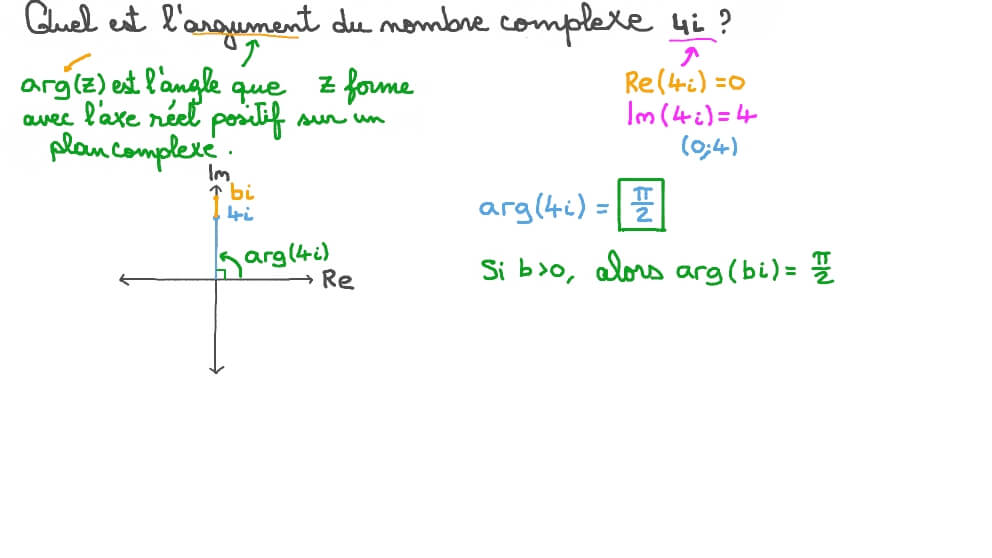 Quel est l'argument du nombre complexe 4i ?
arg(z) est l'angle que z forme
avec l'axe réel positif sur un
plan complexe.
Re(4i) = 0
Im(4i) = 4
(0;4)
Im
bi
4i
arg(4i)
Re
arg(4i) = π/2
Si b>0, alors arg(bi) = π/2